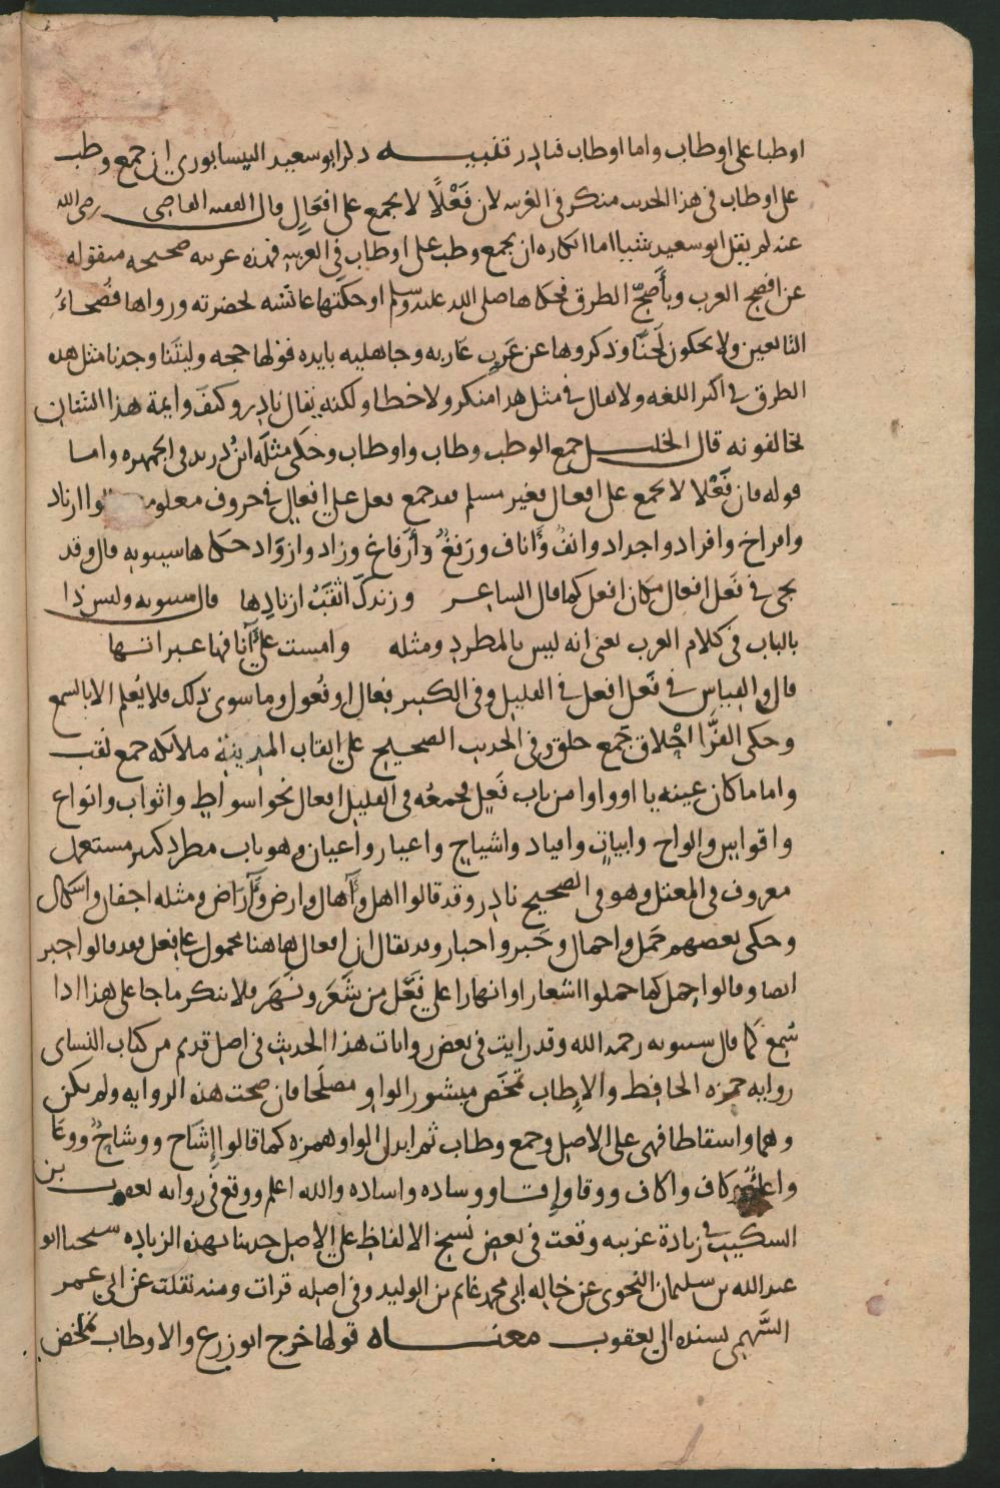 اوطبا على اوطاب واما اوطاب فنادر تنبيه ذكر ابو سعيد النيسابوري ان جمع وطب
على اوطاب في هذا الحديث منكر في العربيه لان فَعْلًا لا يجمع على افعالٍ قال الفقيه القاضي رضي الله
عنه لم يقل ابو سعيد شيا اما انكاره ان يجمع وطب على اوطاب في العربيه فهذه عربيه صحيحه منقوله
عن افصح العرب وبأصحّ الطرق فحكاها صلى الله عليه وسلم او حكتها عائشه لحضرته ورواها فُصَحاءُ
التابعين ولا يحكون لَحنًا وذكروها عن عَرَب عاربه وجاهليه بايده فقولها حجه وليتنا وجدنا مثل هذه
الطرق في اكثر اللغه ولا يقال في مثل هذا منكر ولا خطا ولكنه يقال نادر وكيف وايمة هذا الشان
يخالفونه قال الخليل جمع الوطب وطاب واوطاب وحكى مثلَه ابنُ دريد في الجمهره واما
قوله فان فَعْلا لا يجمع على افعال فغير مسلم فقد جمع فعل على افعال في حروف معلومه قالوا ازناد
وافراخ وافراد واجداد وانفٌ وآناف ورَفغٌ وأرفاغ وزاد وازوَاد حكاها سيبويه قال وقد
يجي في فَعل افعال مكان افعل كما قال الشاعر وزندك اثقبُ ازنادها قال سيبويه وليس ذا
بالباب في كلام العرب يعني انه ليس بالمطرد ومثله وامست على آنافها عبراتها
قال والقياس في فَعل افعل في القليل وفي الكثير فِعال او فُعول وما سوى ذلك فلا يُعلم الا بالسمع
وحكى الفرّا احْلاق جَمع حلق وفي الحديث الصحيح على انقاب المدينة ملائكه جمع نقب
واما ما كان عينه يا او واوا من باب فَعل فجمعُه في القليل افعال نحو اسواط واثواب وانواع
واقواس والواح وابيات واقياد واشياخ واعيار واعيان وهو باب مطرد كثير مستعمل
معروف في المعتل وهو في الصحيح نادر وقد قالوا اهل وآهال وارض وآراض ومثله اجفان واشكال
وحكى بعضهم حَمل واحمال وحَبر واحبار وقد يقال ان افعال هاهنا محمول على افعل فقد قالوا احبر
ايضا وقالوا احمل كما حملوا اشعارا وانهارا على فَعَل من شَعَر ونَهَر فلا ينكر ما جا على هذا اذا
سُمِع كما قال سيبويه رحمه الله وقد رايت في بعض روايات هذا الحديث في اصل قديم من كتاب النساى
روايه حمزه الحافظ والاِطاب تمخَض مبشور الواو مصلَحا فان صحت هذه الروايه ولم يكن
وهما واسقاطا فهي على الاصل وجمع وطاب ثم ابدل الواو همزه كما قالوا إشاح ووشاحٌ ووعَا
واعَا ووكاف واكاف ووقا واِقا ووساده واساده والله اعلم ووقع في روايه يعقوب بن
السكيت في زيادة غريبه وقعت في بعض نسخ الالفاظ على الاصل حدثنا بهذه الزياده شيخنا ابو
عبد الله بن سليمان النحوى عن خاله ابى محمد غانم بن الوليد وفي اصله قرات ومنه نقلت عن ابى عمر
السَّهمى بسنده الى يعقوب معناه قولها خرج ابو زرع والاوطاب تمخض